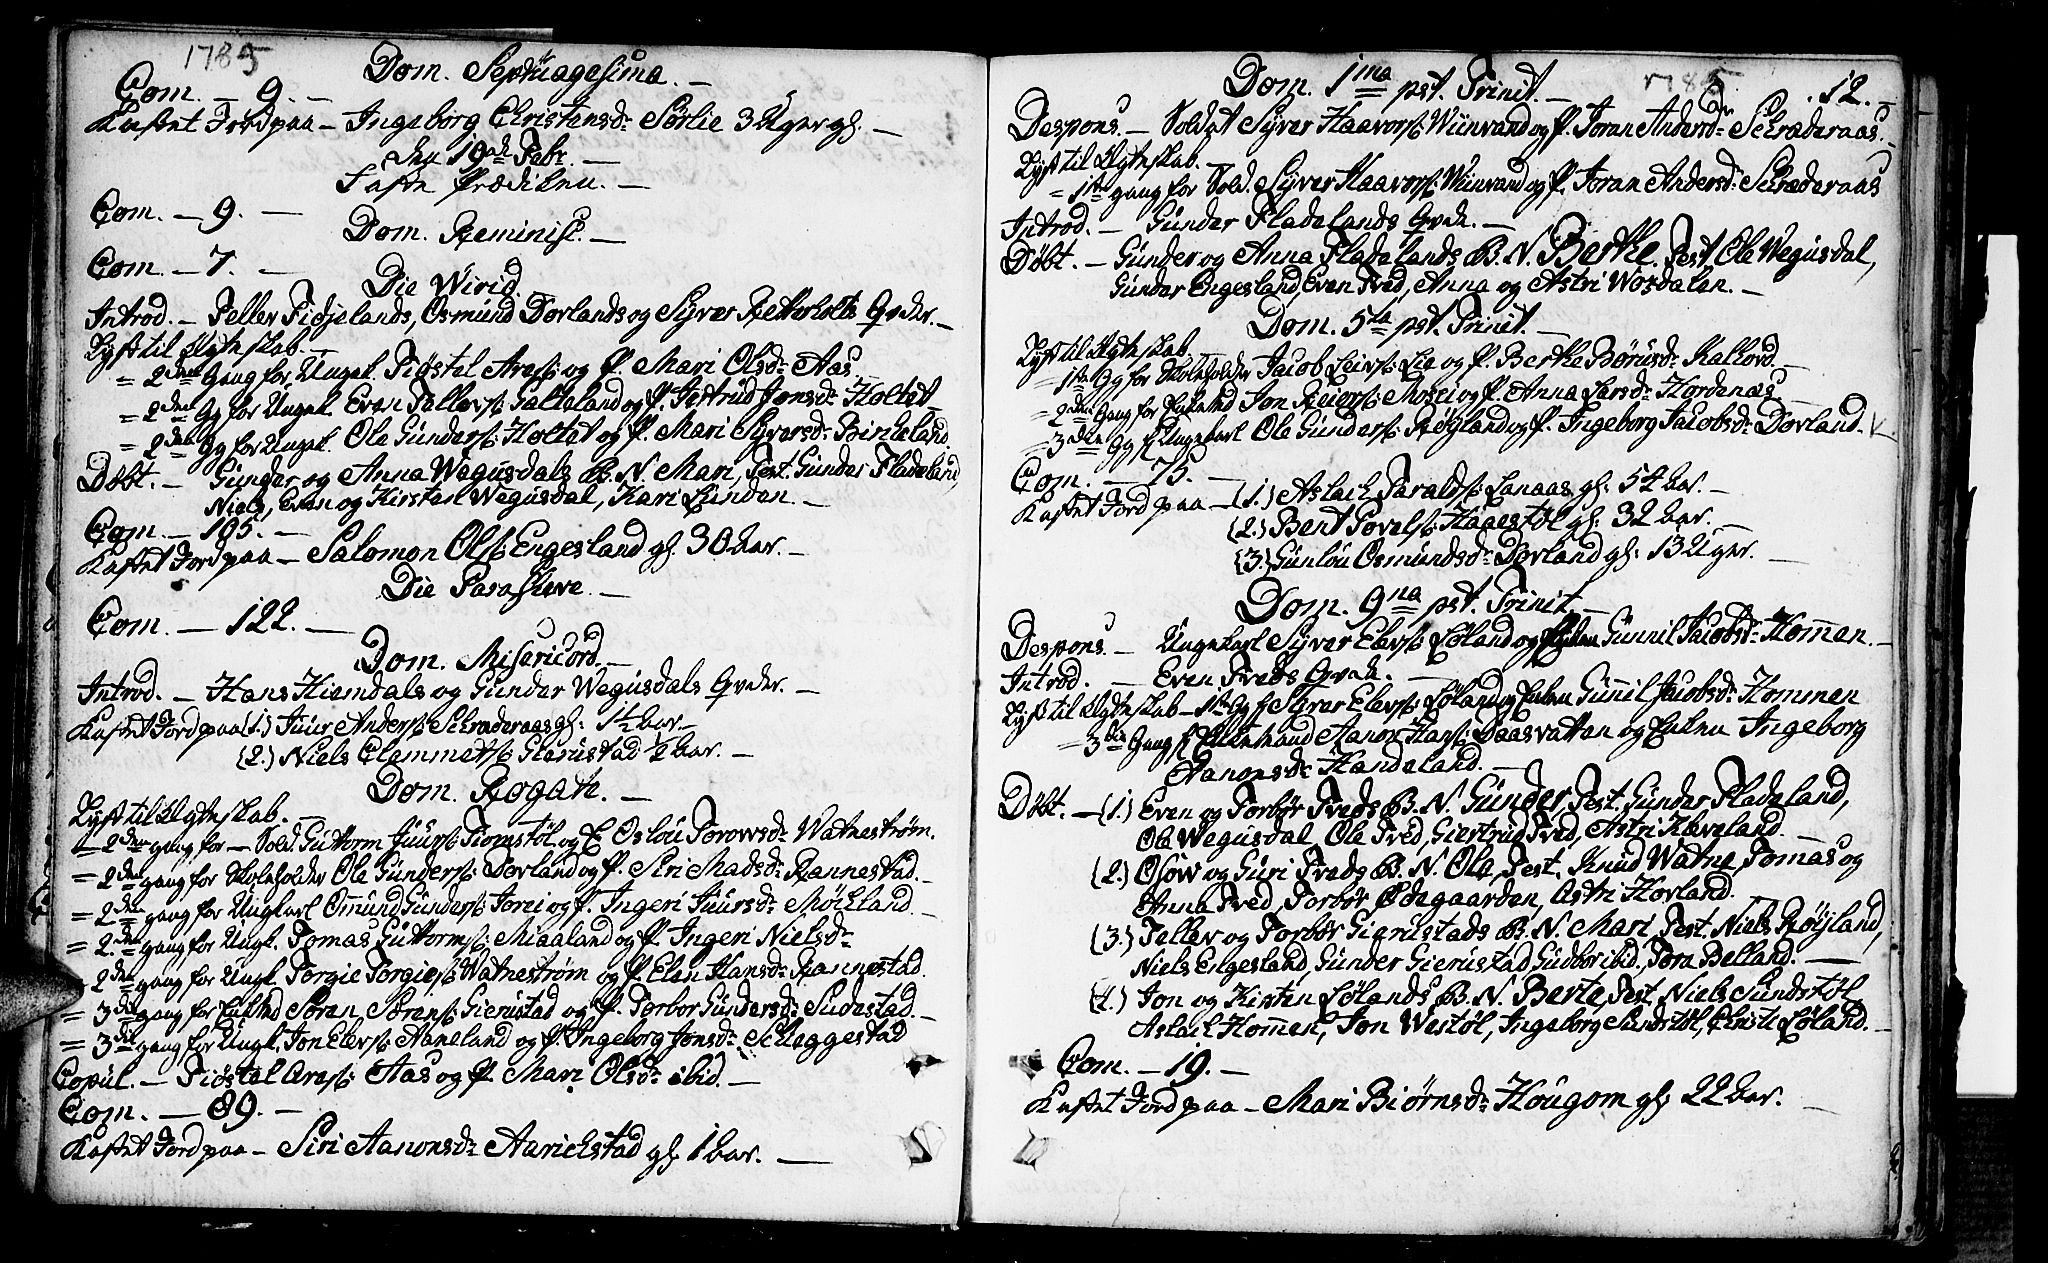 1785
Dom. Septüagesima. —
Com. — 9. —
Kastet Jord paa — Ingeborg Christensd: Sørlie 3 Uger gl. —
den 19de Febr. —
Faste Prædiken. —
Com. — 9. —
Dom. Reminisc. —
Com. — 7. —
Die Virid.
Introd. — Tellev Fidjelands, Osmund Dovlands og Syver Retterholts Qvder. —
Lyst til Ægteskab. —
= 2den Gang for Ungk. Tiøstel Ares: og P. Mari Olsd: Aas.
= 2den Gg for Ungk. Even Tellevs: Galteland og P. Jertrud Jonsd: Holtet
= 2den Gg for Ungk. Ole Günders: Holtet og P. Mari Syversd: Birkeland.
Døbt. — Günder og Anna Wegusdals B. N. Mari, Test. Günder Fladeland,
Niels, Even og Kirsten Wegusdal, Kari Linden. —
Com. — 105. —
Kastet Jord paa — Salomon Ols: Engesland gl. 30 aar. —
Die Parasceve. —
Com. — 122. —
Dom. Misericord. —
Introd. — Hans Kiemdals og Gunder Wegusdals Qvder. —
Kastet Jord paa (1.) Juur Anders: Schræderaas gl: 1½ aar. —
(2.) Niels Clemmets: Gierustad ½ aar. —
Dom. Rogate. —
Lyst til Ægteskab. —
= 2den gang for — Sold. Guttorm Juurs: Tiomstøl og E. Oslou Torowsd: Watnestrøm.
= 2den gang for Skoleholder Ole Günders: Dovland og P. Siri Madsd: Rannestad. —
= 2den gang for Ungkarl Omund Günders: Jorei og P. Ingeri Juursd: Møckland. —
= 2den gang for Ungk. Tomas Guttorms: Miaaland og P. Ingeri Nielsd:
2den gang for Ungk. Torgie Torgies: Watnestrøm og P. Elen Hansd: Rannestad.
= 3die gang for Enkmd Søren Sørens: Gierustad og P. Torbor Gündersd: Sudestad. —
= 3die gang for Ungk. Jon Elevs: Aaneland og P. Ingeborg Jonsd: Scheggestad
Copül. — Tiøstel Ares: Aas og P. Mari Olsd: ibid. —
Com. — 89. —
Kastet Jord paa — Siri Aanonsd: Aarickstad gl. 1 aar. —
Dom. 1ma pst. Trinit. —
1785
12.
Despons. — Soldat Syver Haavors: Wiinvand og P. Joran Andersd: Schræderaas. —
Lyst til Ægteskab. —
= 1ste gang for Sold. Syver Haavors: Wiinvand og P. Joran Andersd: Schræderaas
Introd. — Günder Fladelands Qvde. —
Døbt. — Günder og Anna Fladelands B. N. Berte. Test. Ole Wegusdal,
Günder Engesland, Even Tred, Anna og Astri Wosdalen. —
Dom. 5ta pst. Trinit. —
Lyst til Ægteskab.
= 1ste Gg for Skoleholder Jacob Leivs: Lie og P. Berte Børüsd: Kallord. —
= 2den Gang for Enkemd Jon Reiers: Mosei og P. Anna Larsd: Hordenæs. —
= 3die Gg f. Ungekarl Ole Günders: Røyland og P. Ingeborg Jacobsd: Dovland.
Com. — 75. —
Kastet Jord paa — (1.) Aslach Taralds: Lanaas gl: 54 aar. —
(2.) Bent Tovels: Haaestøl gl: 32 aar. —
(3.) Günlou Osmundsd: Dovland gl: 13 Uger. —
Dom. 9na pst. Trinit. —
Despons. — Ungekarl Syver Elevs: Løland og Enken Günnil Jacobsd: Hommen. —
Introd. — Even Treds Qvde. —
Lyst til Ægteskab — 1ste Gg f. Syver Elevs: Løland og Enken Günnil Jacobsd: Hommen
= 3die Gang f. Enkemand Aanon Hans: Daasvatten og Enken Ingeborg
Aanonsd: Handeland. —
Døbt. — (1.) Even og Torbør Treds B. N. Günder, Test. Günder Fladeland,
Ole Wegusdal, Ole Tred, Giertrud Tred, Astri Kleveland. —
(2.) Osow og Güri Treds B. N. Ole, Test. Knud Watne, Tomas og
Anna Tred, Torbør Ødegaarden, Astri Hovland. —
(3.) Tellev og Torbør Gierustads B. N. Mari, Test. Niels Røijland,
Niels Engesland, Günder Gierustad, Gudbor ibid., Tora Belland. —
(4.) Jon og Kirsten Lølands B. N. Berte, Test. Niels Sundstøl,
Aslach Hommen, Jon Westøl, Ingeborg Sundstøl, Christi Løland. —
Com. — 19. —
Kastet Jord paa — Mari Biørnsd: Hougom gl. 22 aar. —